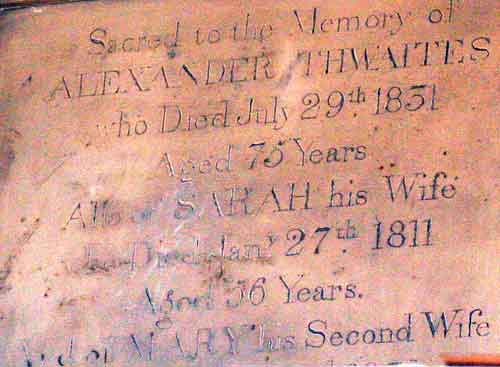 Sacred to the Memory of
ALEXANDER THWAITES
who Died July 29th 1831
Aged 75 Years
Also of SARAH his Wife
who Died Jany 27th 1811
Aged 56 Years.
And of MARY his Second Wife